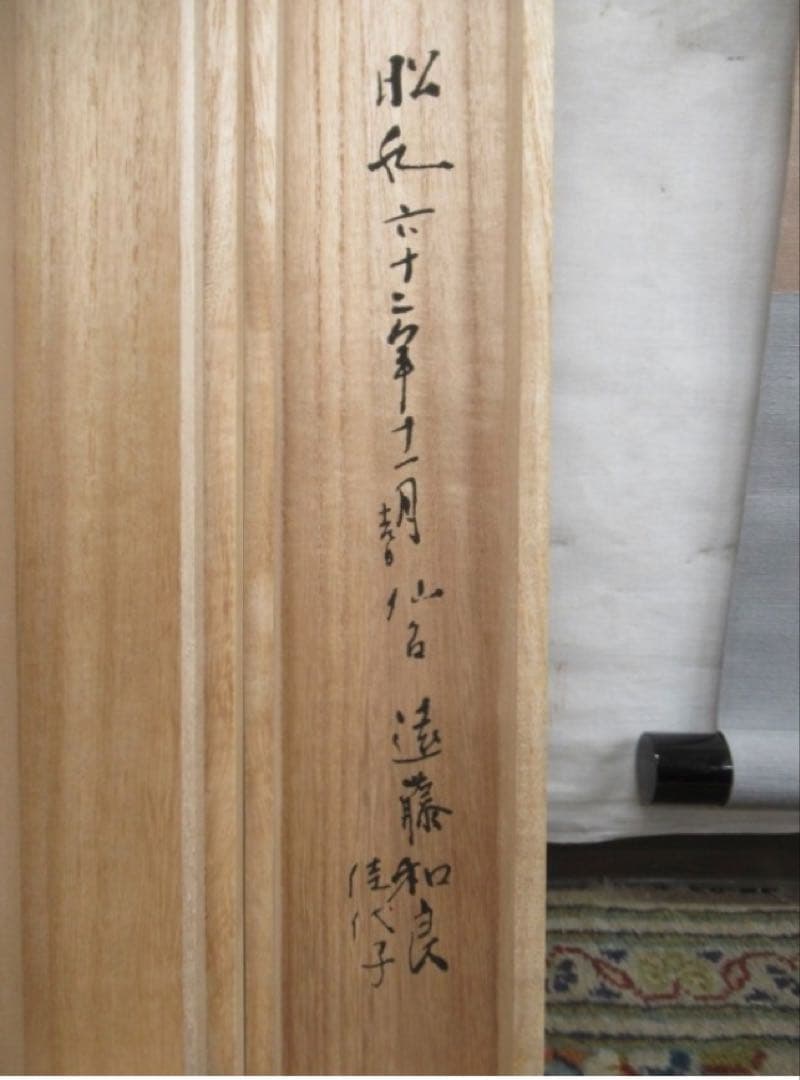 昭和六十二年十一月吉日 仙台 遠藤和良
佳代子